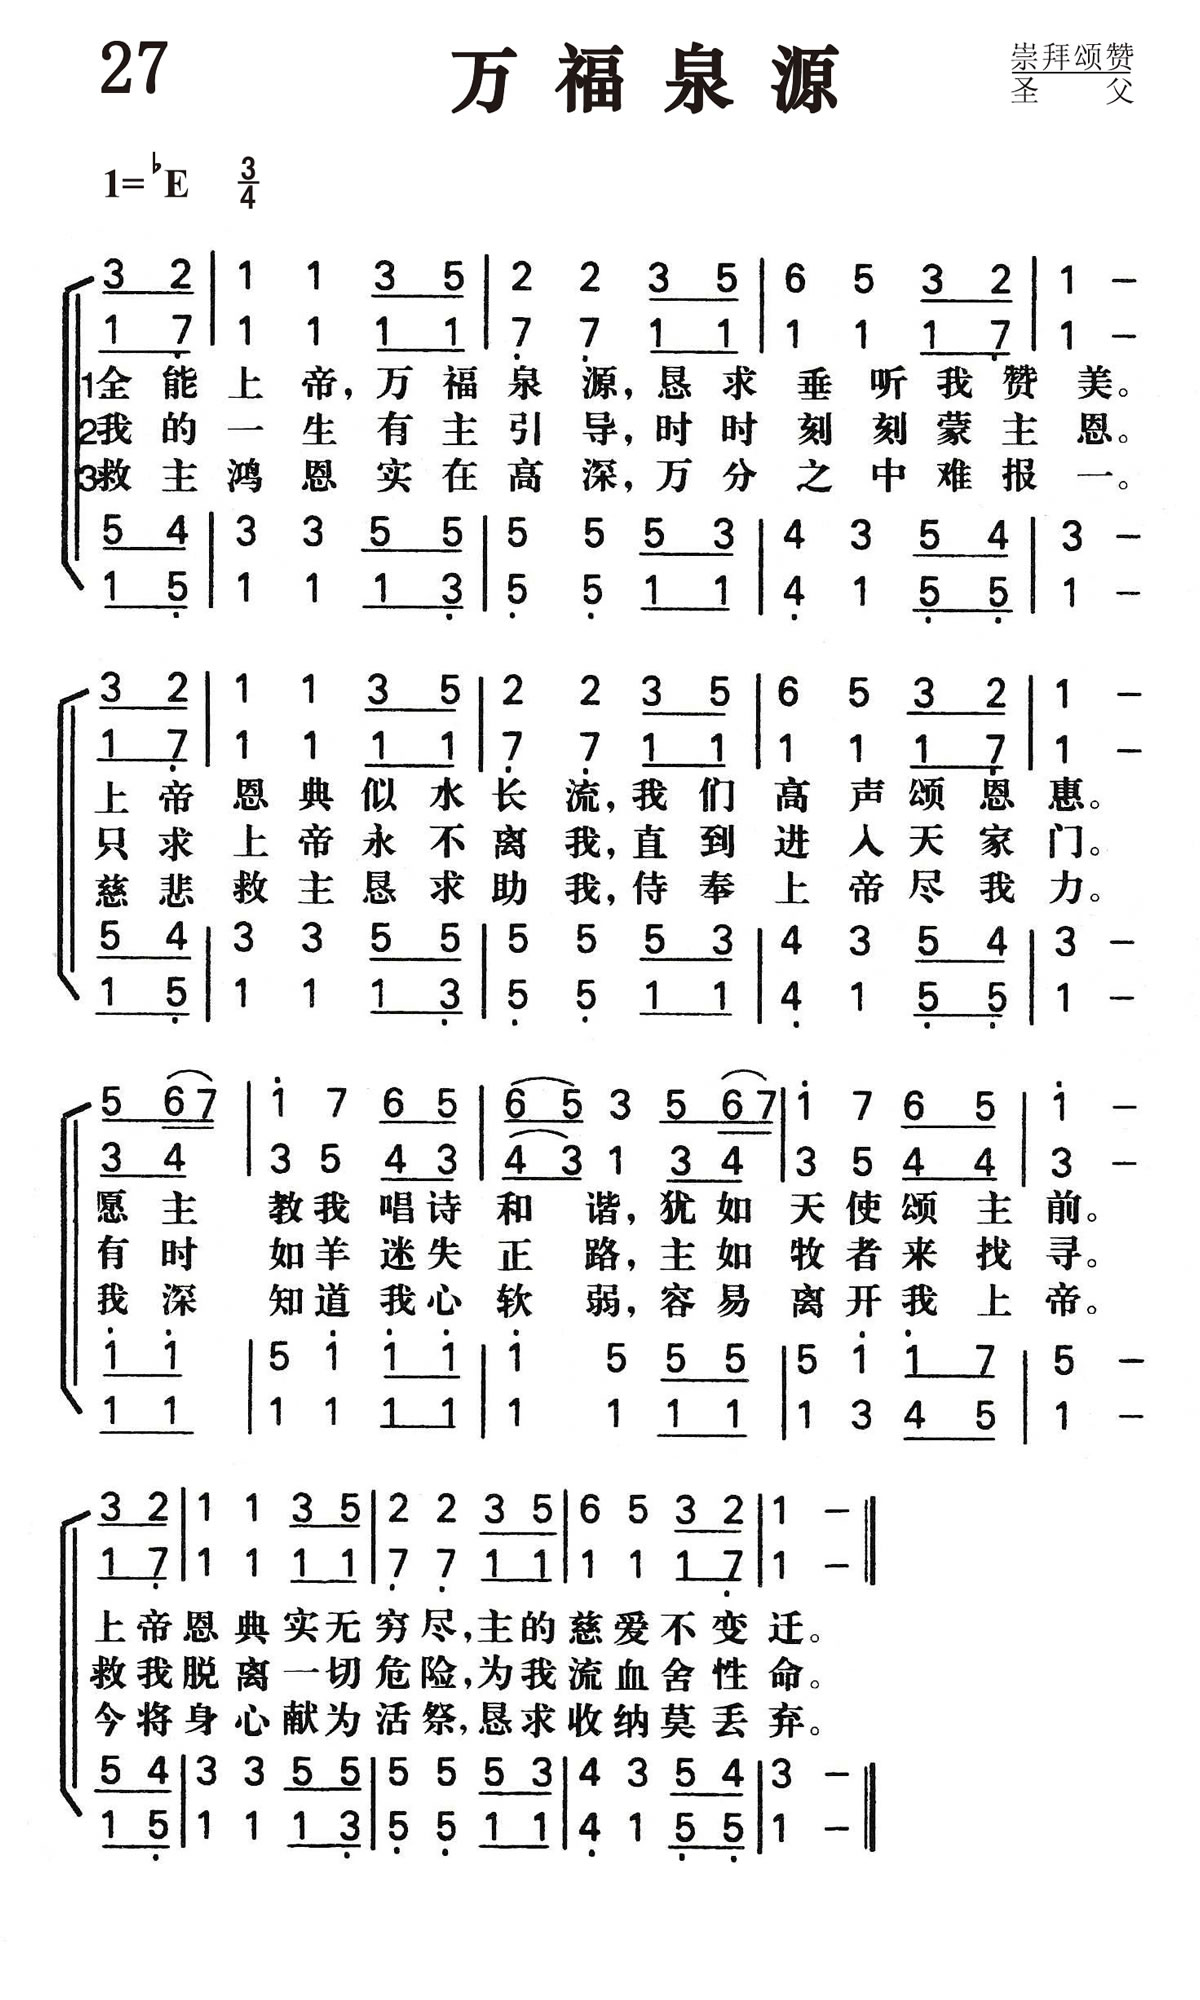 27
万福泉源
崇拜颂赞
圣父
1=♭E 3/4
3 2 | 1 1 3 5 | 2 2 3 5 | 6 5 3 2 | 1 –
1 7̣ | 1 1 1 1 | 7̣ 7̣ 1 1 | 1 1 1 7̣ | 1 –
1全能上帝,万福泉源,恳求垂听我赞美。
2我的一生有主引导,时时刻刻蒙主恩。
3救主鸿恩实在高深,万分之中难报一。
5 4 | 3 3 5 5 | 5 5 5 3 | 4 3 5 4 | 3 –
1 5̣ | 1 1 1 3̣ | 5̣ 5̣ 1 1 | 4̣ 1 5̣ 5̣ | 1 –
3 2 | 1 1 3 5 | 2 2 3 5 | 6 5 3 2 | 1 –
1 7̣ | 1 1 1 1 | 7̣ 7̣ 1 1 | 1 1 1 7̣ | 1 –
上帝恩典似水长流,我们高声颂恩惠。
只求上帝永不离我,直到进入天家门。
慈悲救主恳求助我,侍奉上帝尽我力。
5 4 | 3 3 5 5 | 5 5 5 3 | 4 3 5 4 | 3 –
1 5̣ | 1 1 1 3̣ | 5̣ 5̣ 1 1 | 4̣ 1 5̣ 5̣ | 1 –
5 6 7 | 1̇ 7 6 5 | 6 5 3 5 6 7 | 1̇ 7 6 5 | 1̇ –
3 4 | 3 5 4 3 | 4 3 1 3 4 | 3 5 4 4 | 3 –
愿主教我唱诗和谐,犹如天使颂主前。
有时如羊迷失正路,主如牧者来找寻。
我深知道我心软弱,容易离开我上帝。
1̇ 1̇ | 5 1̇ 1̇ 1̇ | 1̇ 5 5 5 | 5 1̇ 1̇ 7 | 5 –
1 1 | 1 1 1 1 | 1 1 1 1 | 1 3 4 5 | 1 –
3 2 | 1 1 3 5 | 2 2 3 5 | 6 5 3 2 | 1 – ‖
1 7̣ | 1 1 1 1 | 7̣ 7̣ 1 1 | 1 1 1 7̣ | 1 – ‖
上帝恩典实无穷尽,主的慈爱不变迁。
救我脱离一切危险,为我流血舍性命。
今将身心献为活祭,恳求收纳莫丢弃。
5 4 | 3 3 5 5 | 5 5 5 3 | 4 3 5 4 | 3 – ‖
1 5̣ | 1 1 1 3̣ | 5̣ 5̣ 1 1 | 4̣ 1 5̣ 5̣ | 1 – ‖